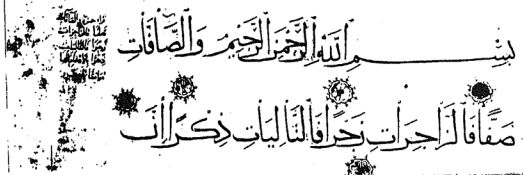 بِسْمِ اللَّهِ الرَّحْمَنِ الرَّحِيمِ وَالصَّافَّاتِ
صَفًّا فَالزَّاجِرَاتِ زَجْرًا فَالتَّالِيَاتِ ذِكْرًا إِنَّ